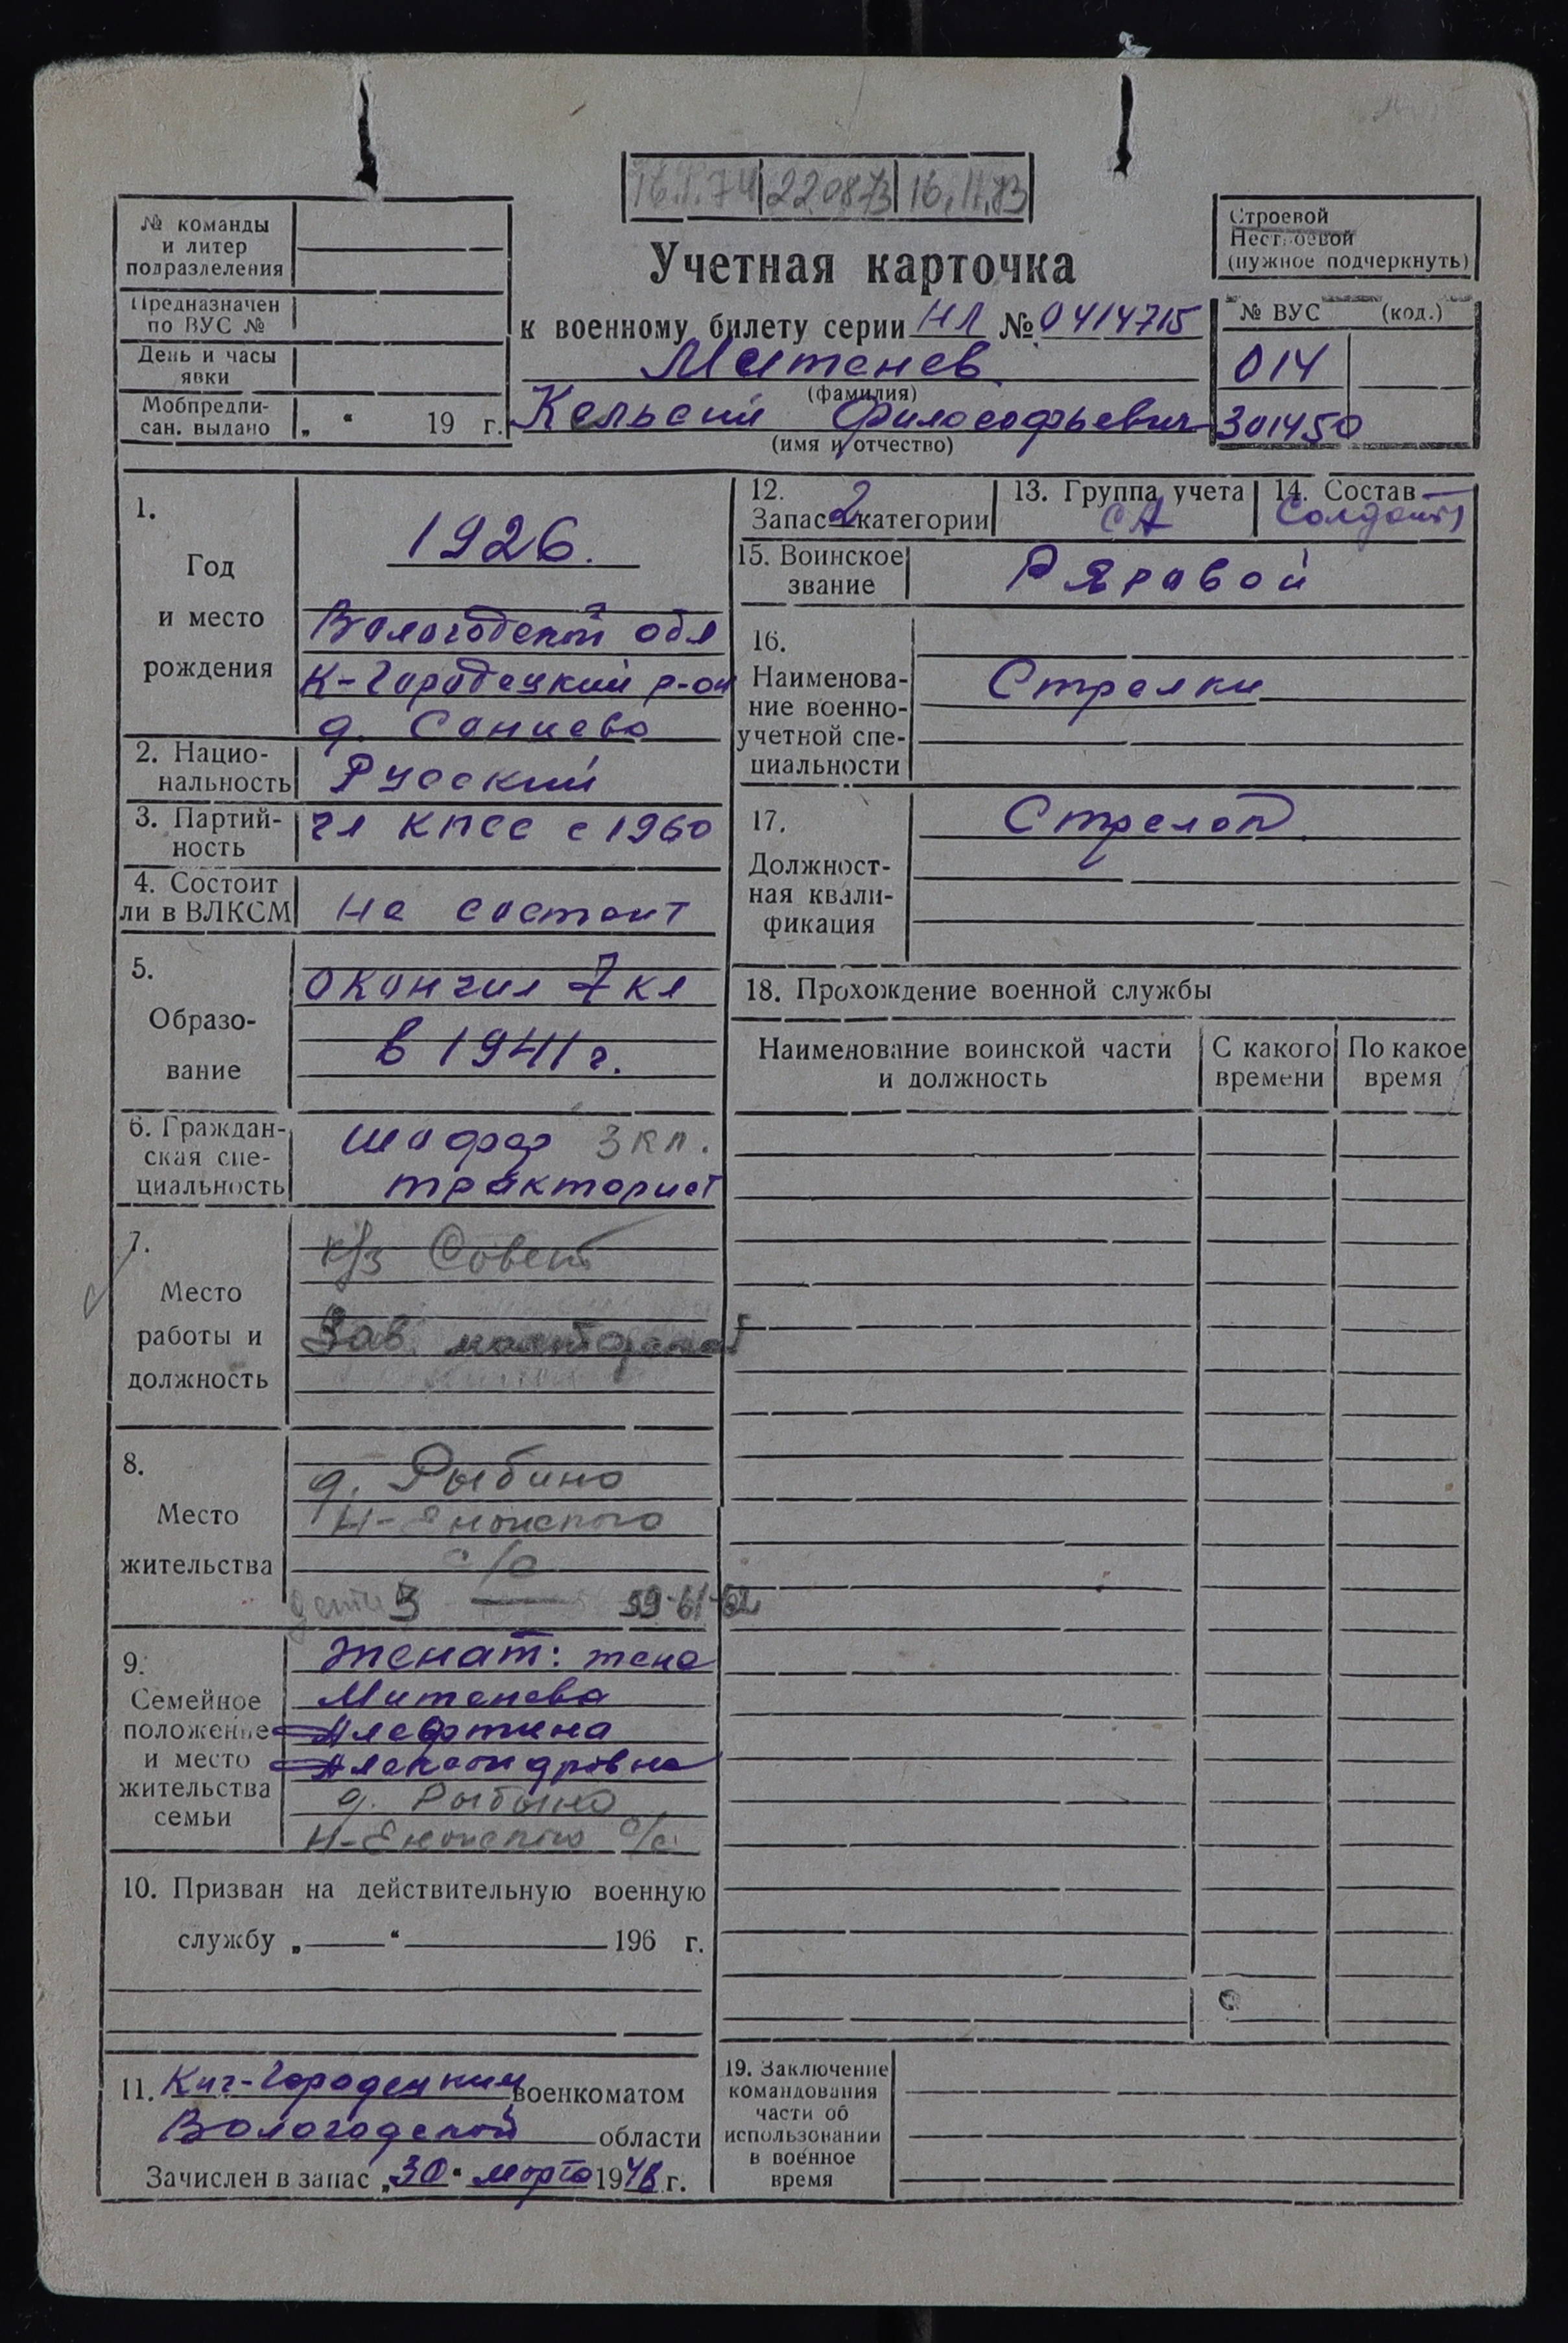 16.I.74 22.08.73 16.II.83
№ команды
и литер
подразделения
Предназначен
по ВУС №
День и часы
явки
Мобпредпи-
сан. выдано „ “ 19 г.
Учетная карточка
к военному билету серии НЛ № 0414715
Митенев
(фамилия)
Кельсий Философьевич
(имя и отчество)
Строевой
Нестроевой
(нужное подчеркнуть)
№ ВУС (код.)
014
301450
1.
Год
и место
рождения
1926.
Вологодской обл
К-Городецкий р-он
д.
2. Нацио-
нальность Русский
3. Партий-
ность чл КПСС с 1960
4. Состоит
ли в ВЛКСМ Не состоит
5.
Образо-
вание
окончил 7 кл
в 1941 г.
6. Граждан-
ская спе-
циальность
шофер 3 кл.
тракторист
7.
Место
работы и
должность
к/з Совет
Зав.
8.
Место
жительства
д. Рыбино
Н-Енангского
с/с
дети 3 59-61-62
9.
Семейное
положение
и место
жительства
семьи
Женат: жена
Митенева
Алефтина
Александровна
д. Рыбино
Н-Енангского с/с
10. Призван на действительную военную
службу „ “ 196 г.
11. Кич-Городецким военкоматом
Вологодской области
Зачислен в запас „30“ марта 1948 г.
12.
Запас 2 категории
13. Группа учета
СА
14. Состав
Солдаты
15. Воинское
звание
Рядовой
16.
Наименова-
ние военно-
учетной спе-
циальности
Стрелки
17.
Должност-
ная квали-
фикация
Стрелок
18. Прохождение военной службы
Наименование воинской части
и должность
С какого
времени
По какое
время
19. Заключение
командования
части об
использовании
в военное
время